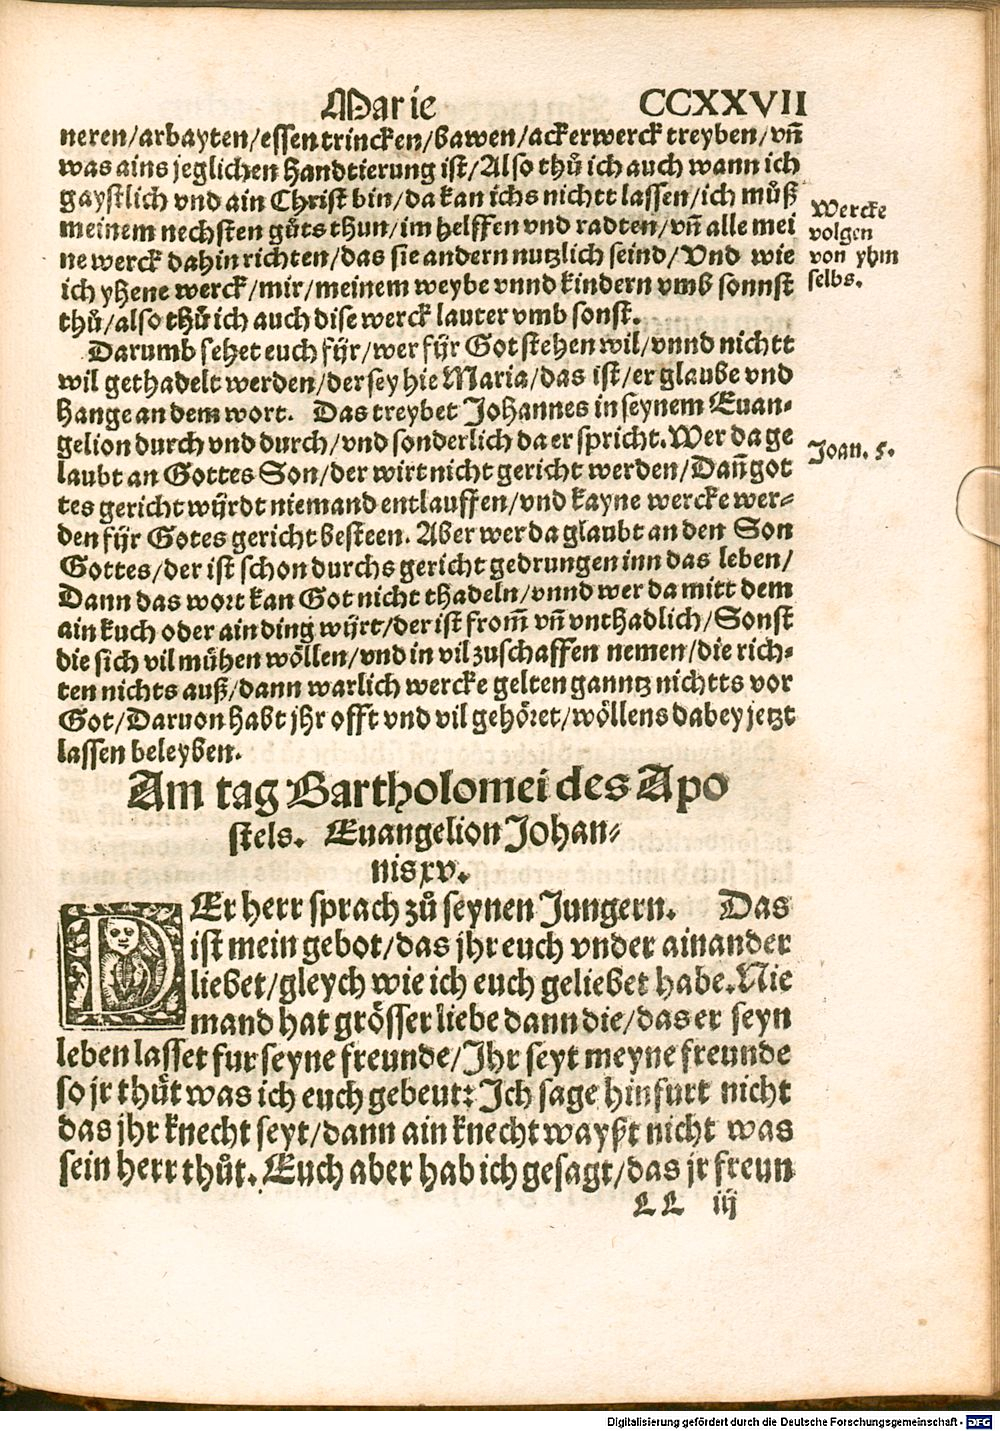 Marie CCXXVII
neren/arbayten/essen trincken/bawen/ackerwerck treyben/vn̄
was ains jeglichen handtierung ist/Also thů ich auch wann ich
gaystlich vnd ain Christ bin/da kan ichs nichtt lassen/ich můß
meinem nechsten gůts thun/im helffen vnd radten/vn̄ alle mei
ne werck dahin richten/das sie andern nutzlich seind/Vnd wie
ich yhene werck/mir/meinem weybe vnnd kindern vmb sonnst
thů/also thů ich auch dise werck lauter vmb sonst.
Wercke
volgen
von yhm
selbs.
Darumb sehet euch für/wer für Got stehen wil/vnnd nichtt
wil gethadelt werden/der sey hie Maria/das ist/er glaube vnd
hange an dem wort. Das treybet Johannes in seynem Euan-
gelion durch vnd durch/vnd sonderlich da er spricht.Wer da ge
laubt an Gottes Son/der wirt nicht gericht werden/Dan̄ got
tes gericht würdt niemand entlauffen/vnd kayne wercke wer-
den für Gotes gericht besteen. Aber wer da glaubt an den Son
Gottes/der ist schon durchs gericht gedrungen inn das leben/
Dann das wort kan Got nicht thadeln/vnnd wer da mitt dem
ain kuch oder ain ding würt/der ist from̄ vn̄ vnthadlich/Sonst
die sich vil mühen wöllen/vnd in vil zuschaffen nemen/die rich-
ten nichts auß/dann warlich wercke gelten ganntz nichtts vor
Got/Daruon habt jhr offt vnd vil gehöret/wöllens dabey jetzt
lassen beleyben.
Joan. 5.
Am tag Bartholomei des Apo
stels. Euangelion Johan-
nis xv.
DEr herr sprach zů seynen Jungern. Das
ist mein gebot/das jhr euch vnder ainander
liebet/gleych wie ich euch geliebet habe.Nie
mand hat grösser liebe dann die/das er seyn
leben lasset fur seyne freunde/Jhr seyt meyne freunde
so jr thůt was ich euch gebeut: Ich sage hinfurt nicht
das jhr knecht seyt/dann ain knecht wayßt nicht was
sein herr thůt. Euch aber hab ich gesagt/das jr freun
LL iij
Digitalisierung gefördert durch die Deutsche Forschungsgemeinschaft - DFG